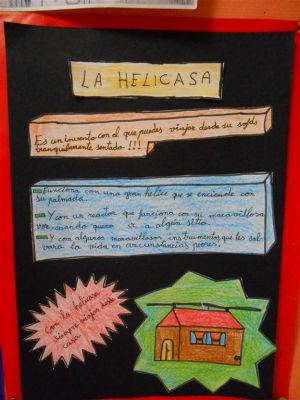 LA HELICASA
Es un invento con el que puedes viajar desde su sofá
tranquilamente sentado !!!
Funciona con una gran hélice que se enciende con
su palmada.
Y con un reactor que funciona con su maravillosa
voz cuando quiera ir a algún sitio.
Y con algunos maravillosos instrumentos que les sal-
vara la vida en circunstancias peores.
Con la helicasa
siempre viajas
casa.